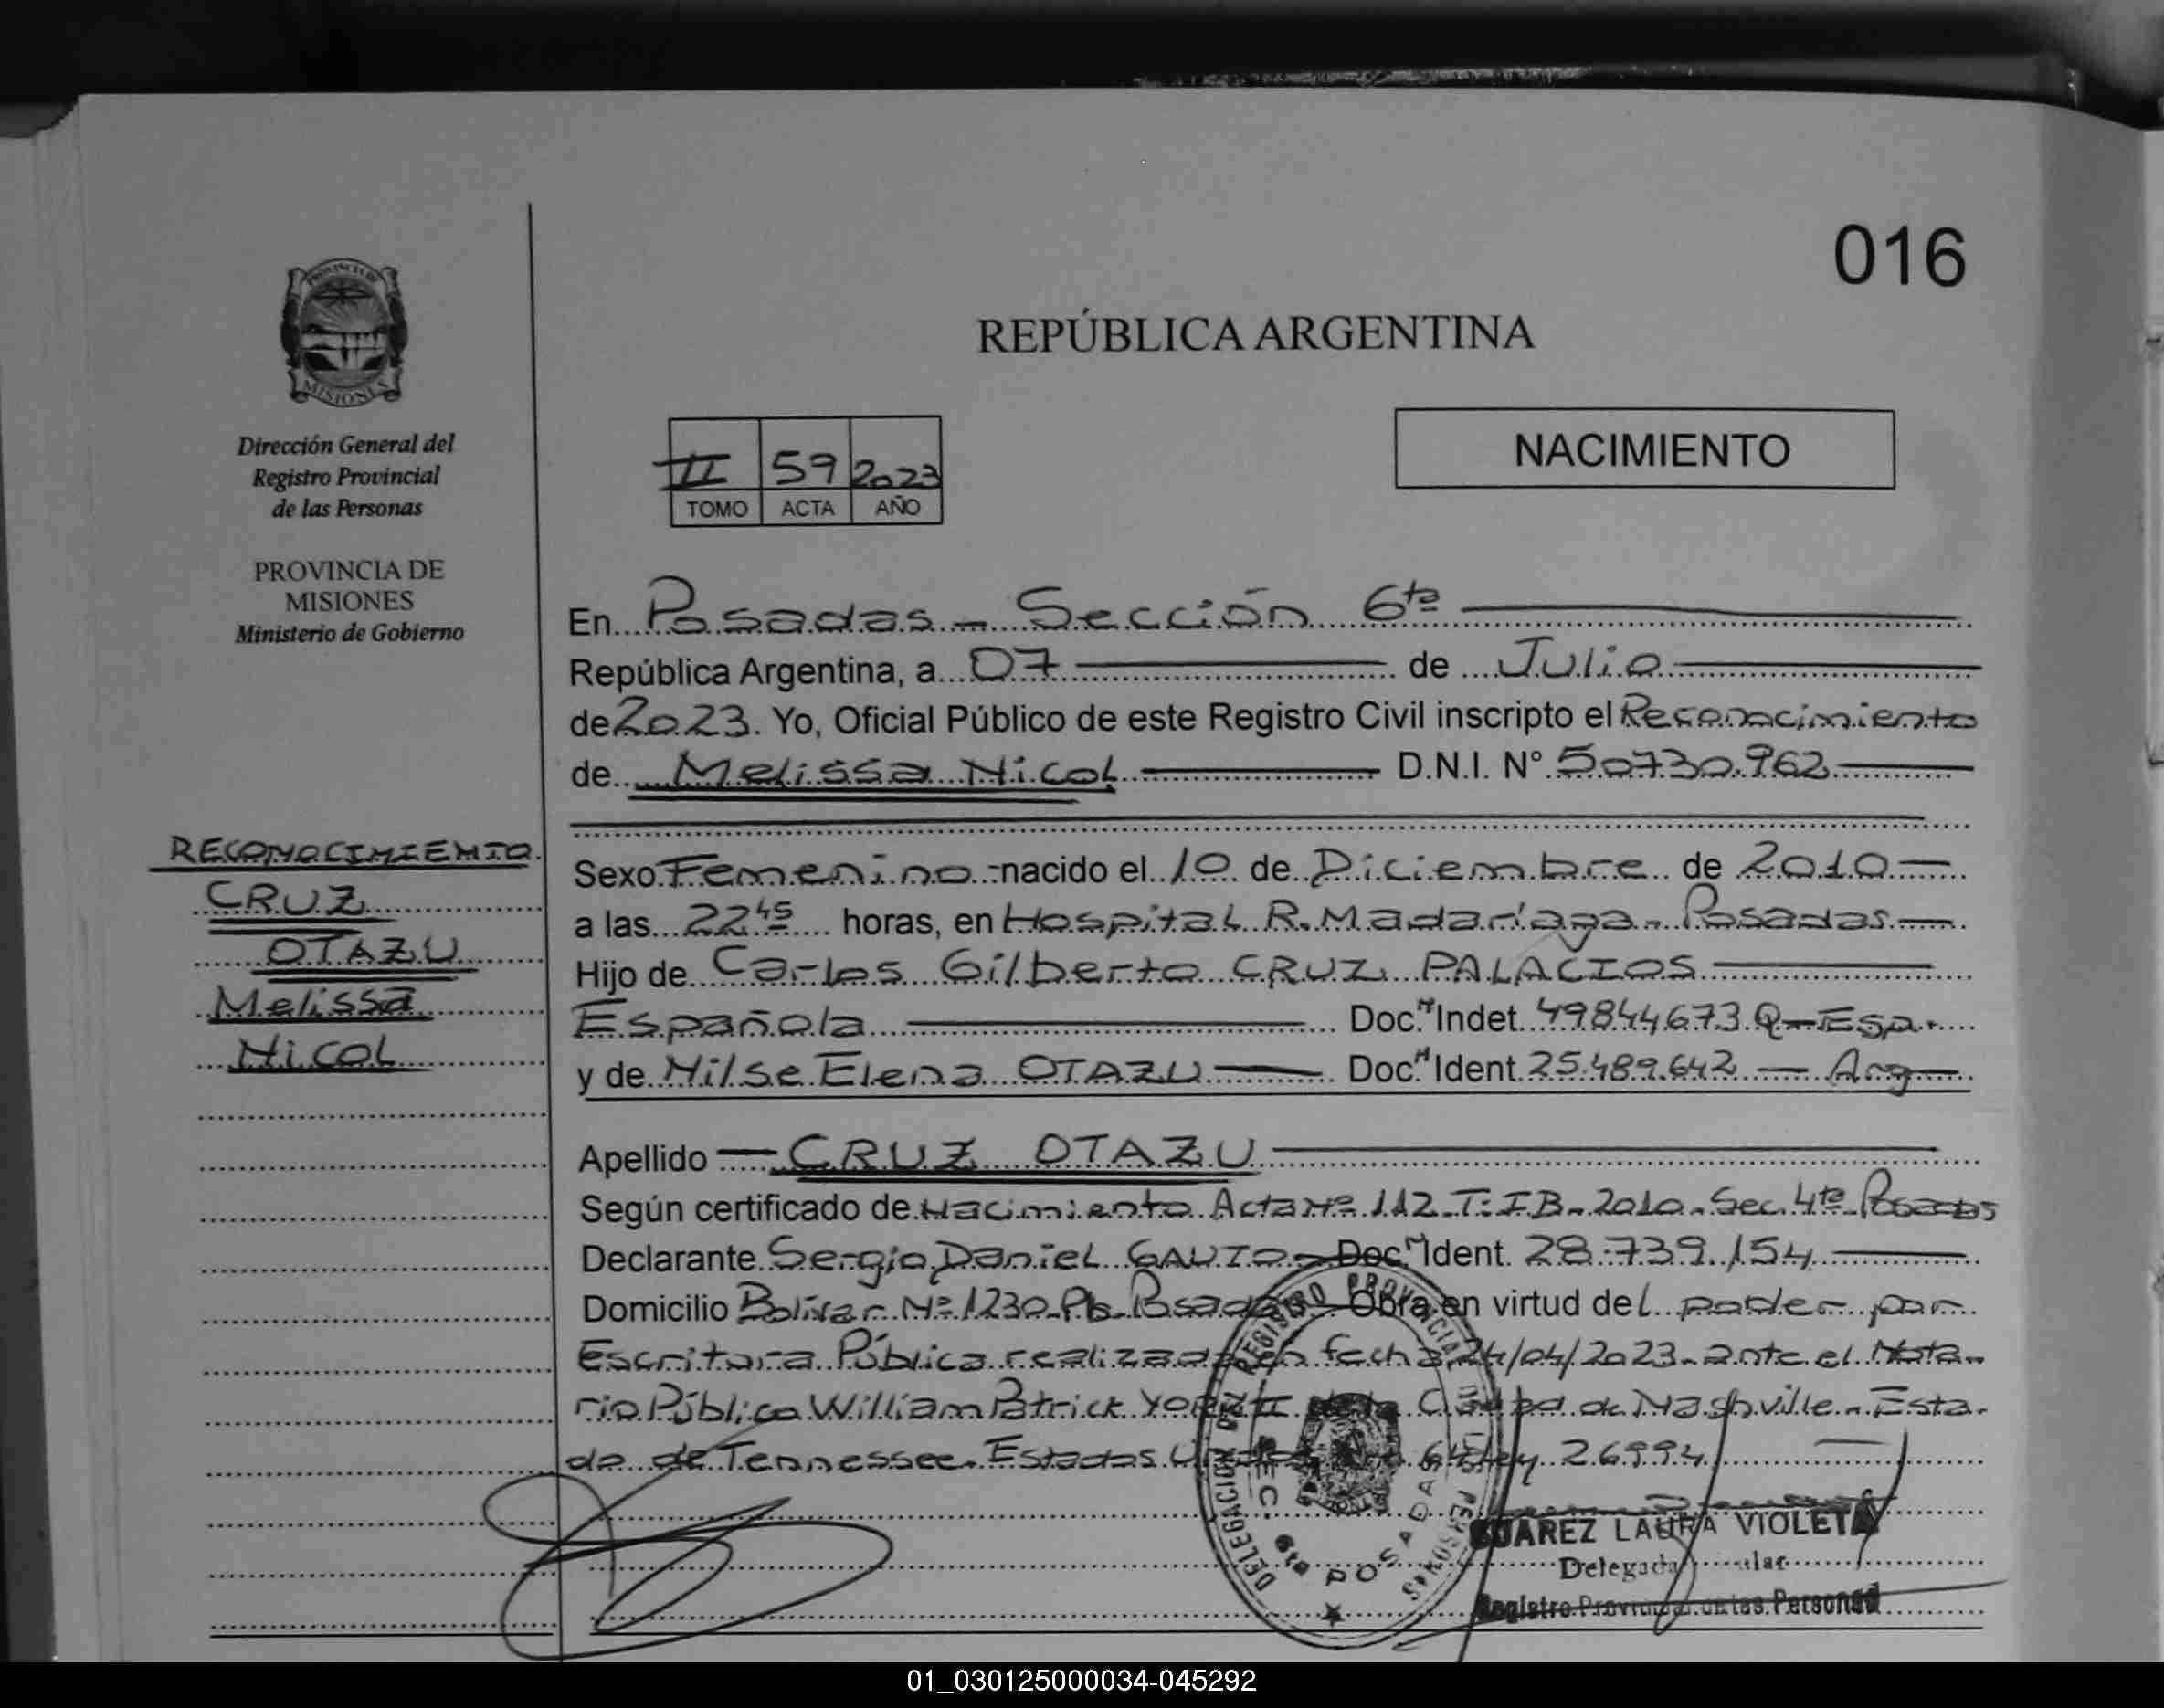 016
REPÚBLICA ARGENTINA
PROVINCIA DE
MISIONES
Dirección General del
Registro Provincial
de las Personas
PROVINCIA DE
MISIONES
Ministerio de Gobierno
II 59 2023
TOMO ACTA AÑO
NACIMIENTO
En Posadas - Sección 6ta
República Argentina, a 07 de Julio
de 2023. Yo, Oficial Público de este Registro Civil inscripto el Reconocimiento
de Melissa Nicol D.N.I. N° 50730.962
RECONOCIMIENTO
CRUZ
OTAZU
Melissa
Nicol
Sexo Femenino nacido el 10 de Diciembre de 2010
a las 22 45 horas, en Hospital R. Madariaga - Posadas
Hijo de Carlos Gilberto CRUZ PALACIOS
Española Doc. N Indet. 49844673 Q - Esp.
y de Nilse Elena OTAZU Doc. N Ident. 25.489.642 - Arg
Apellido CRUZ OTAZU
Según certificado de Nacimiento Acta Nº 112 - T: IB - 2010 - Sec. 4ta Posadas
Declarante Sergio Daniel GAUTO - Doc. N Ident. 28.739.154
Domicilio Bolivar Nº 1230 - Pb - Posadas - Obra en virtud del poder por
Escritura Pública realizada en fecha 24/04/2023 - ante el Nota-
rio Público William Patrick de la Ciudad de Nashville - Esta-
do de Tennessee. Estados 64 Ley 26994
DELEGACION DEL REGISTRO PROVINCIAL DE LAS PERSONAS
SEC. 6ta POSADAS
SUAREZ LAURA VIOLETA
Delegada
Registro Provincial de las Personas
01_030125000034-045292